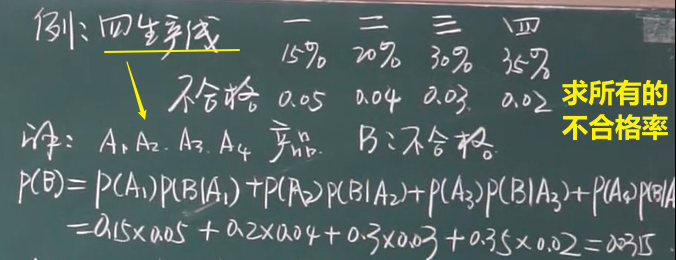 例: 四生产线 一 二 三 四
15% 20% 30% 35%
不合格 0.05 0.04 0.03 0.02
求所有的
不合格率
A₁ A₂. A₃. A₄ 产品. B:不合格.
P(B)=P(A₁)P(B|A₁)+P(A₂)P(B|A₂)+P(A₃)P(B|A₃)+P(A₄)P(B|A
=0.15×0.05+0.2×0.04+0.3×0.03+0.35×0.02=0.0315.